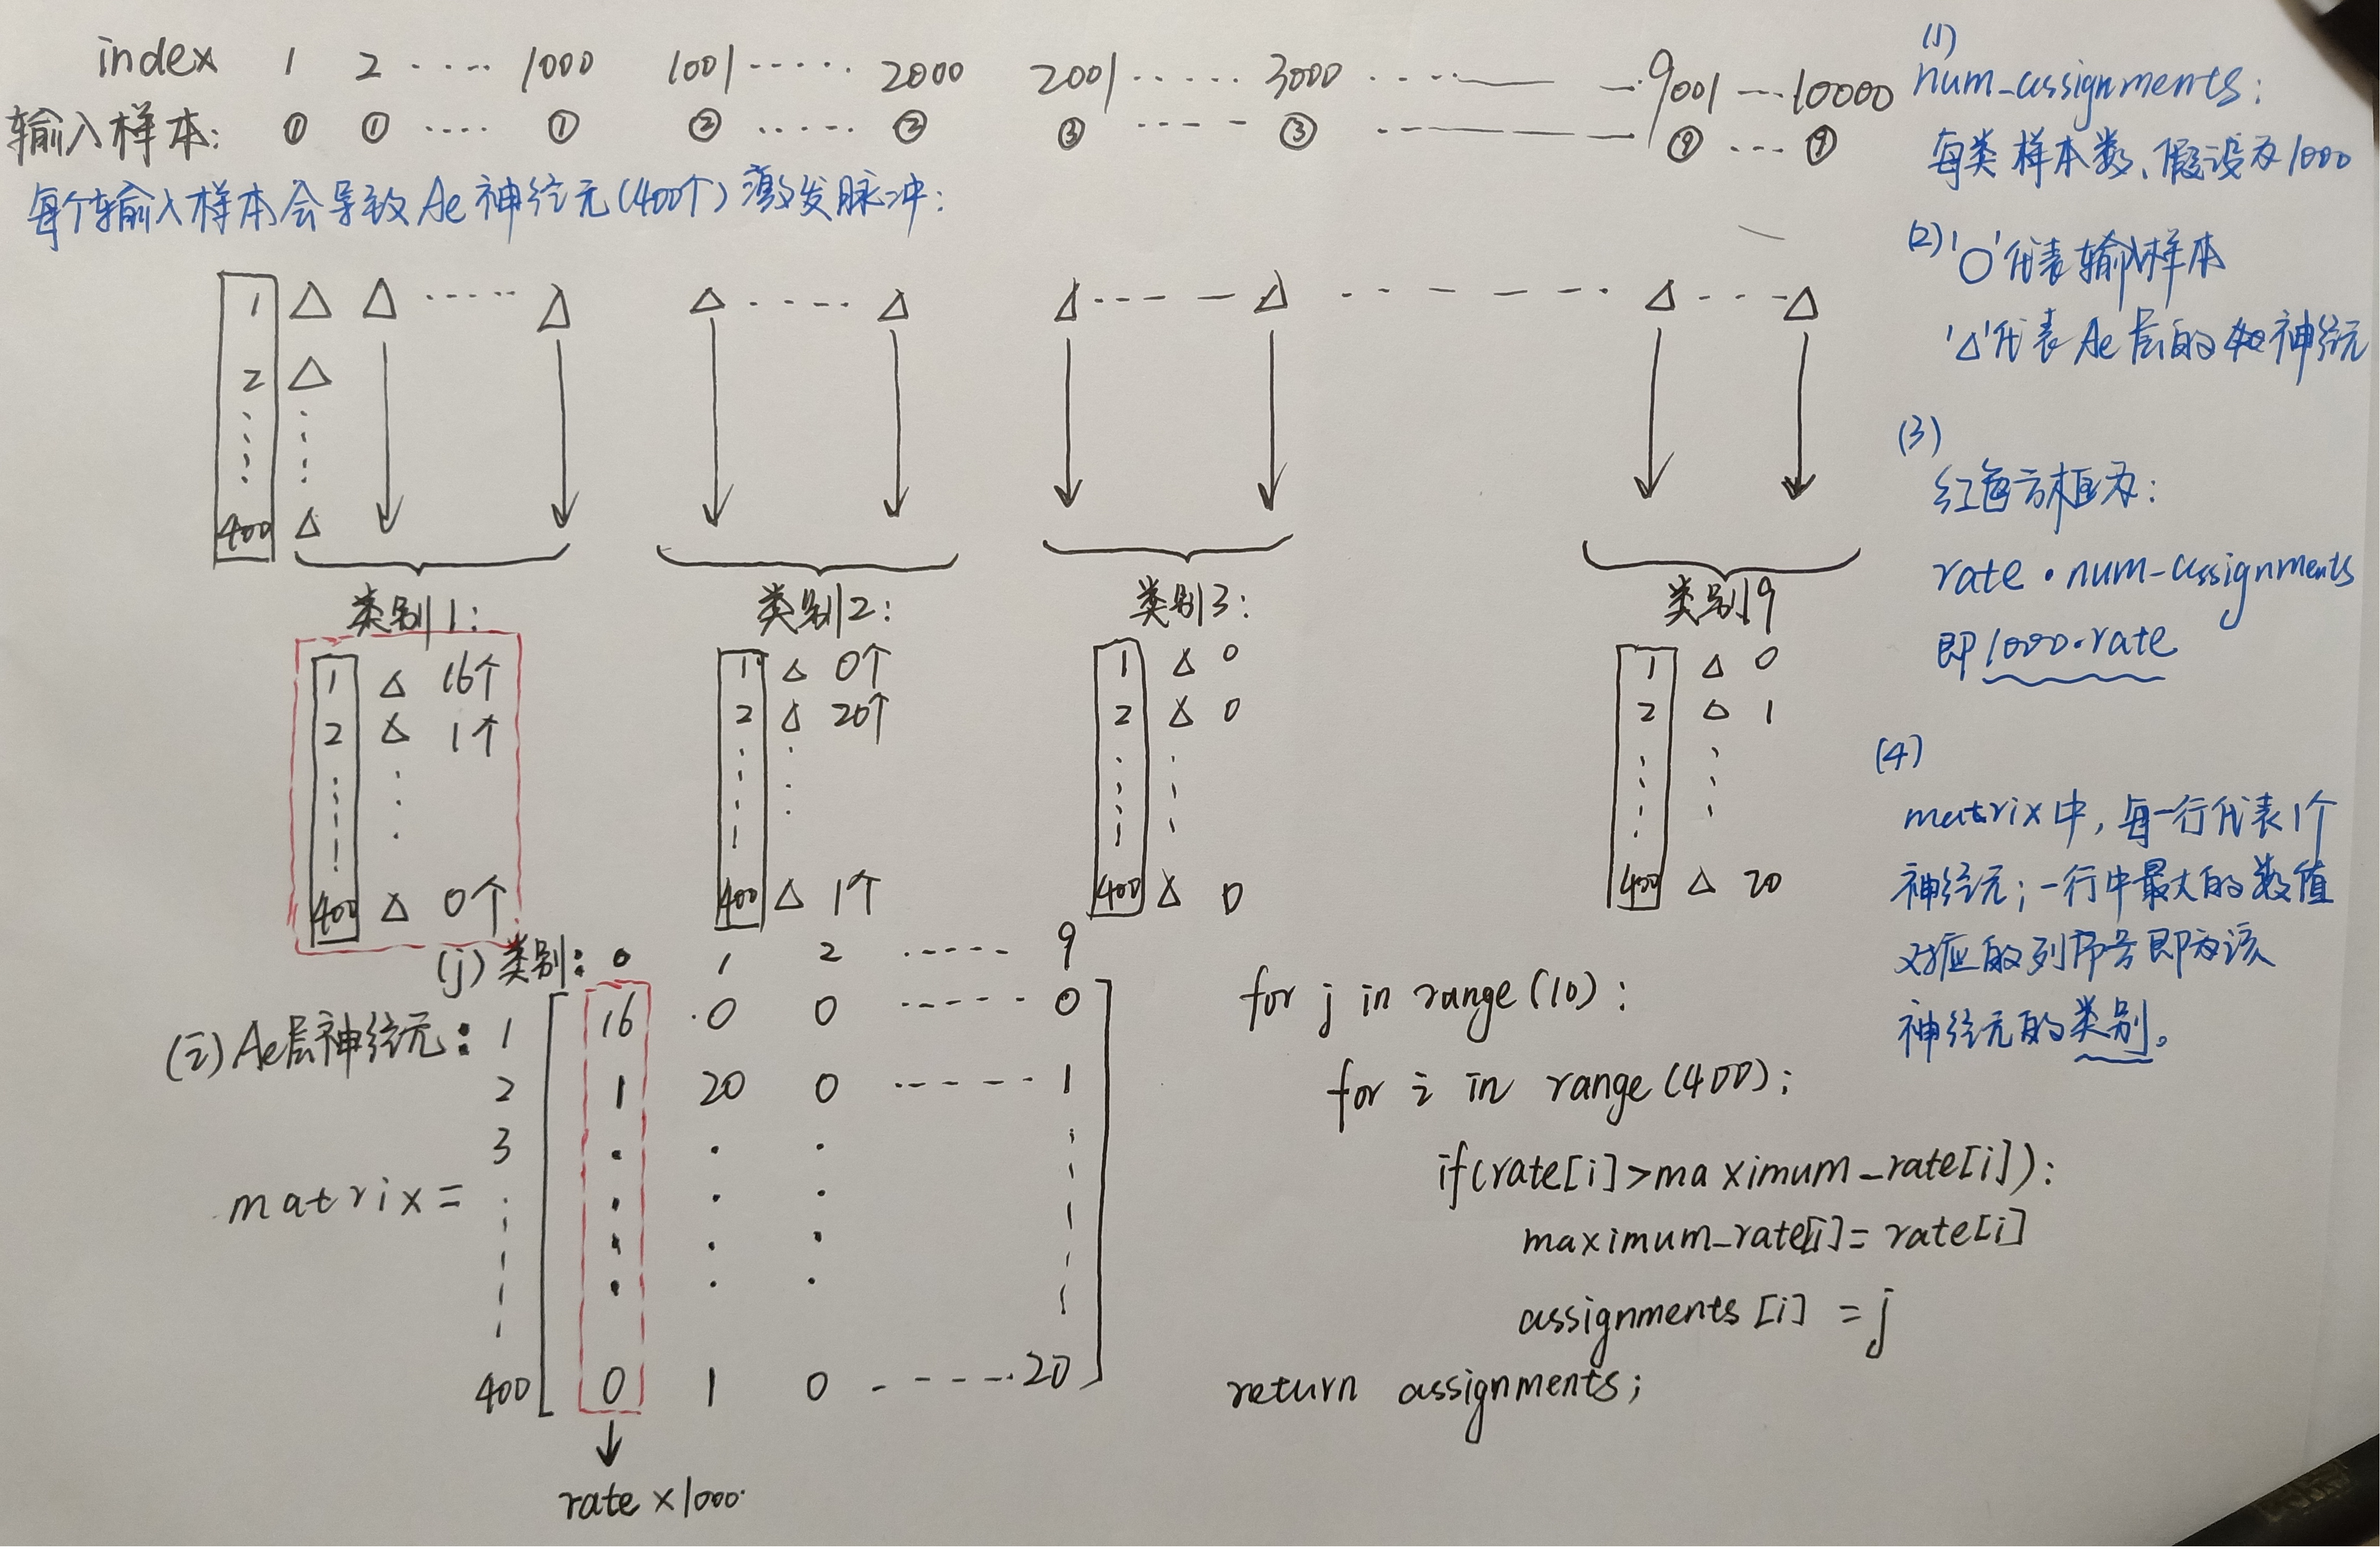 index 1 2 ····· 1000 1001 ······ 2000 2001 ······ 3000 ······ —— — 9001 --- 10000
输入样本: ① ① ····· ① ② ······ ② ③ ---- - ③ ------ —— ⑨ --- ⑨
每个输入样本会导致Ae神经元(400个)激发脉冲:
1 △ △ ······ △ △ ······ △ △ ---- △ - - - - - - △ ---- △
2 △
400 △
类别1: 类别2: 类别3: 类别9
1 △ 16个 1 △ 0个 1 △ 0 1 △ 0
2 △ 1个 2 △ 20个 2 △ 0 2 △ 1
400 △ 0个 400 △ 1个 400 △ 0 400 △ 20
(j)类别: 0 1 2 ······ 9
(i)Ae层神经元: 1 16 0 0 ------ 0
2 1 20 0 ------ 1
3
matrix =
400 0 1 0 ------ 20
rate×1000
for j in range(10):
for i in range(400):
if(rate[i]>maximum_rate[i]):
maximum_rate[i]=rate[i]
assignments[i] = j
return assignments;
(1)
num-assignments:
每类样本数、假设为1000
(2)'○'代表输入样本
'△'代表Ae层的神经元
(3)
红色方框为:
rate·num-assignments
即1000·rate
(4)
matrix中,每一行代表1个
神经元;一行中最大的数值
对应的列序号即为该
神经元的类别。